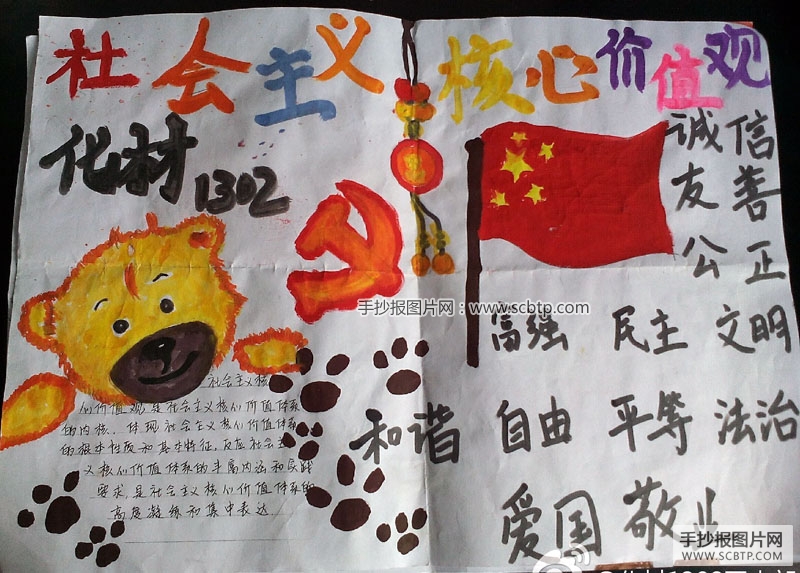 社会主义 核心价值观
化材1302
诚信
友善
公正
手抄报图片网:www.scbtp.com
富强 民主 文明
和谐 自由 平等 法治
爱国 敬业
社会主义核
心价值观是社会主义核心价值体系
的内核，体现社会主义核心价值体系
的根本性质和基本特征，反应社会主
义核心价值体系的丰富内涵和实践
要求，是社会主义核心价值体系的
高度凝练和集中表达
手抄报图片网
WWW.SCBTP.COM